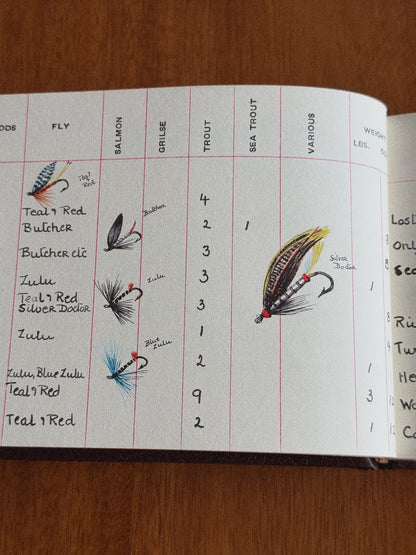 ODS FLY SALMON GRILSE TROUT SEA TROUT VARIOUS WEIGHT
LBS.
Teal & Red
4
Teal & Red
Butcher 2 1
Butcher
8
Lost
Butcher etc 3
8
Only
Silver Doctor
Zulu 3
Zulu
1
Teal & Red
Silver Doctor 3
8
Zulu 1
4
Blue Zulu
2
Zulu, Blue Zulu 1
Teal & Red 9 3
Teal & Red 2 1